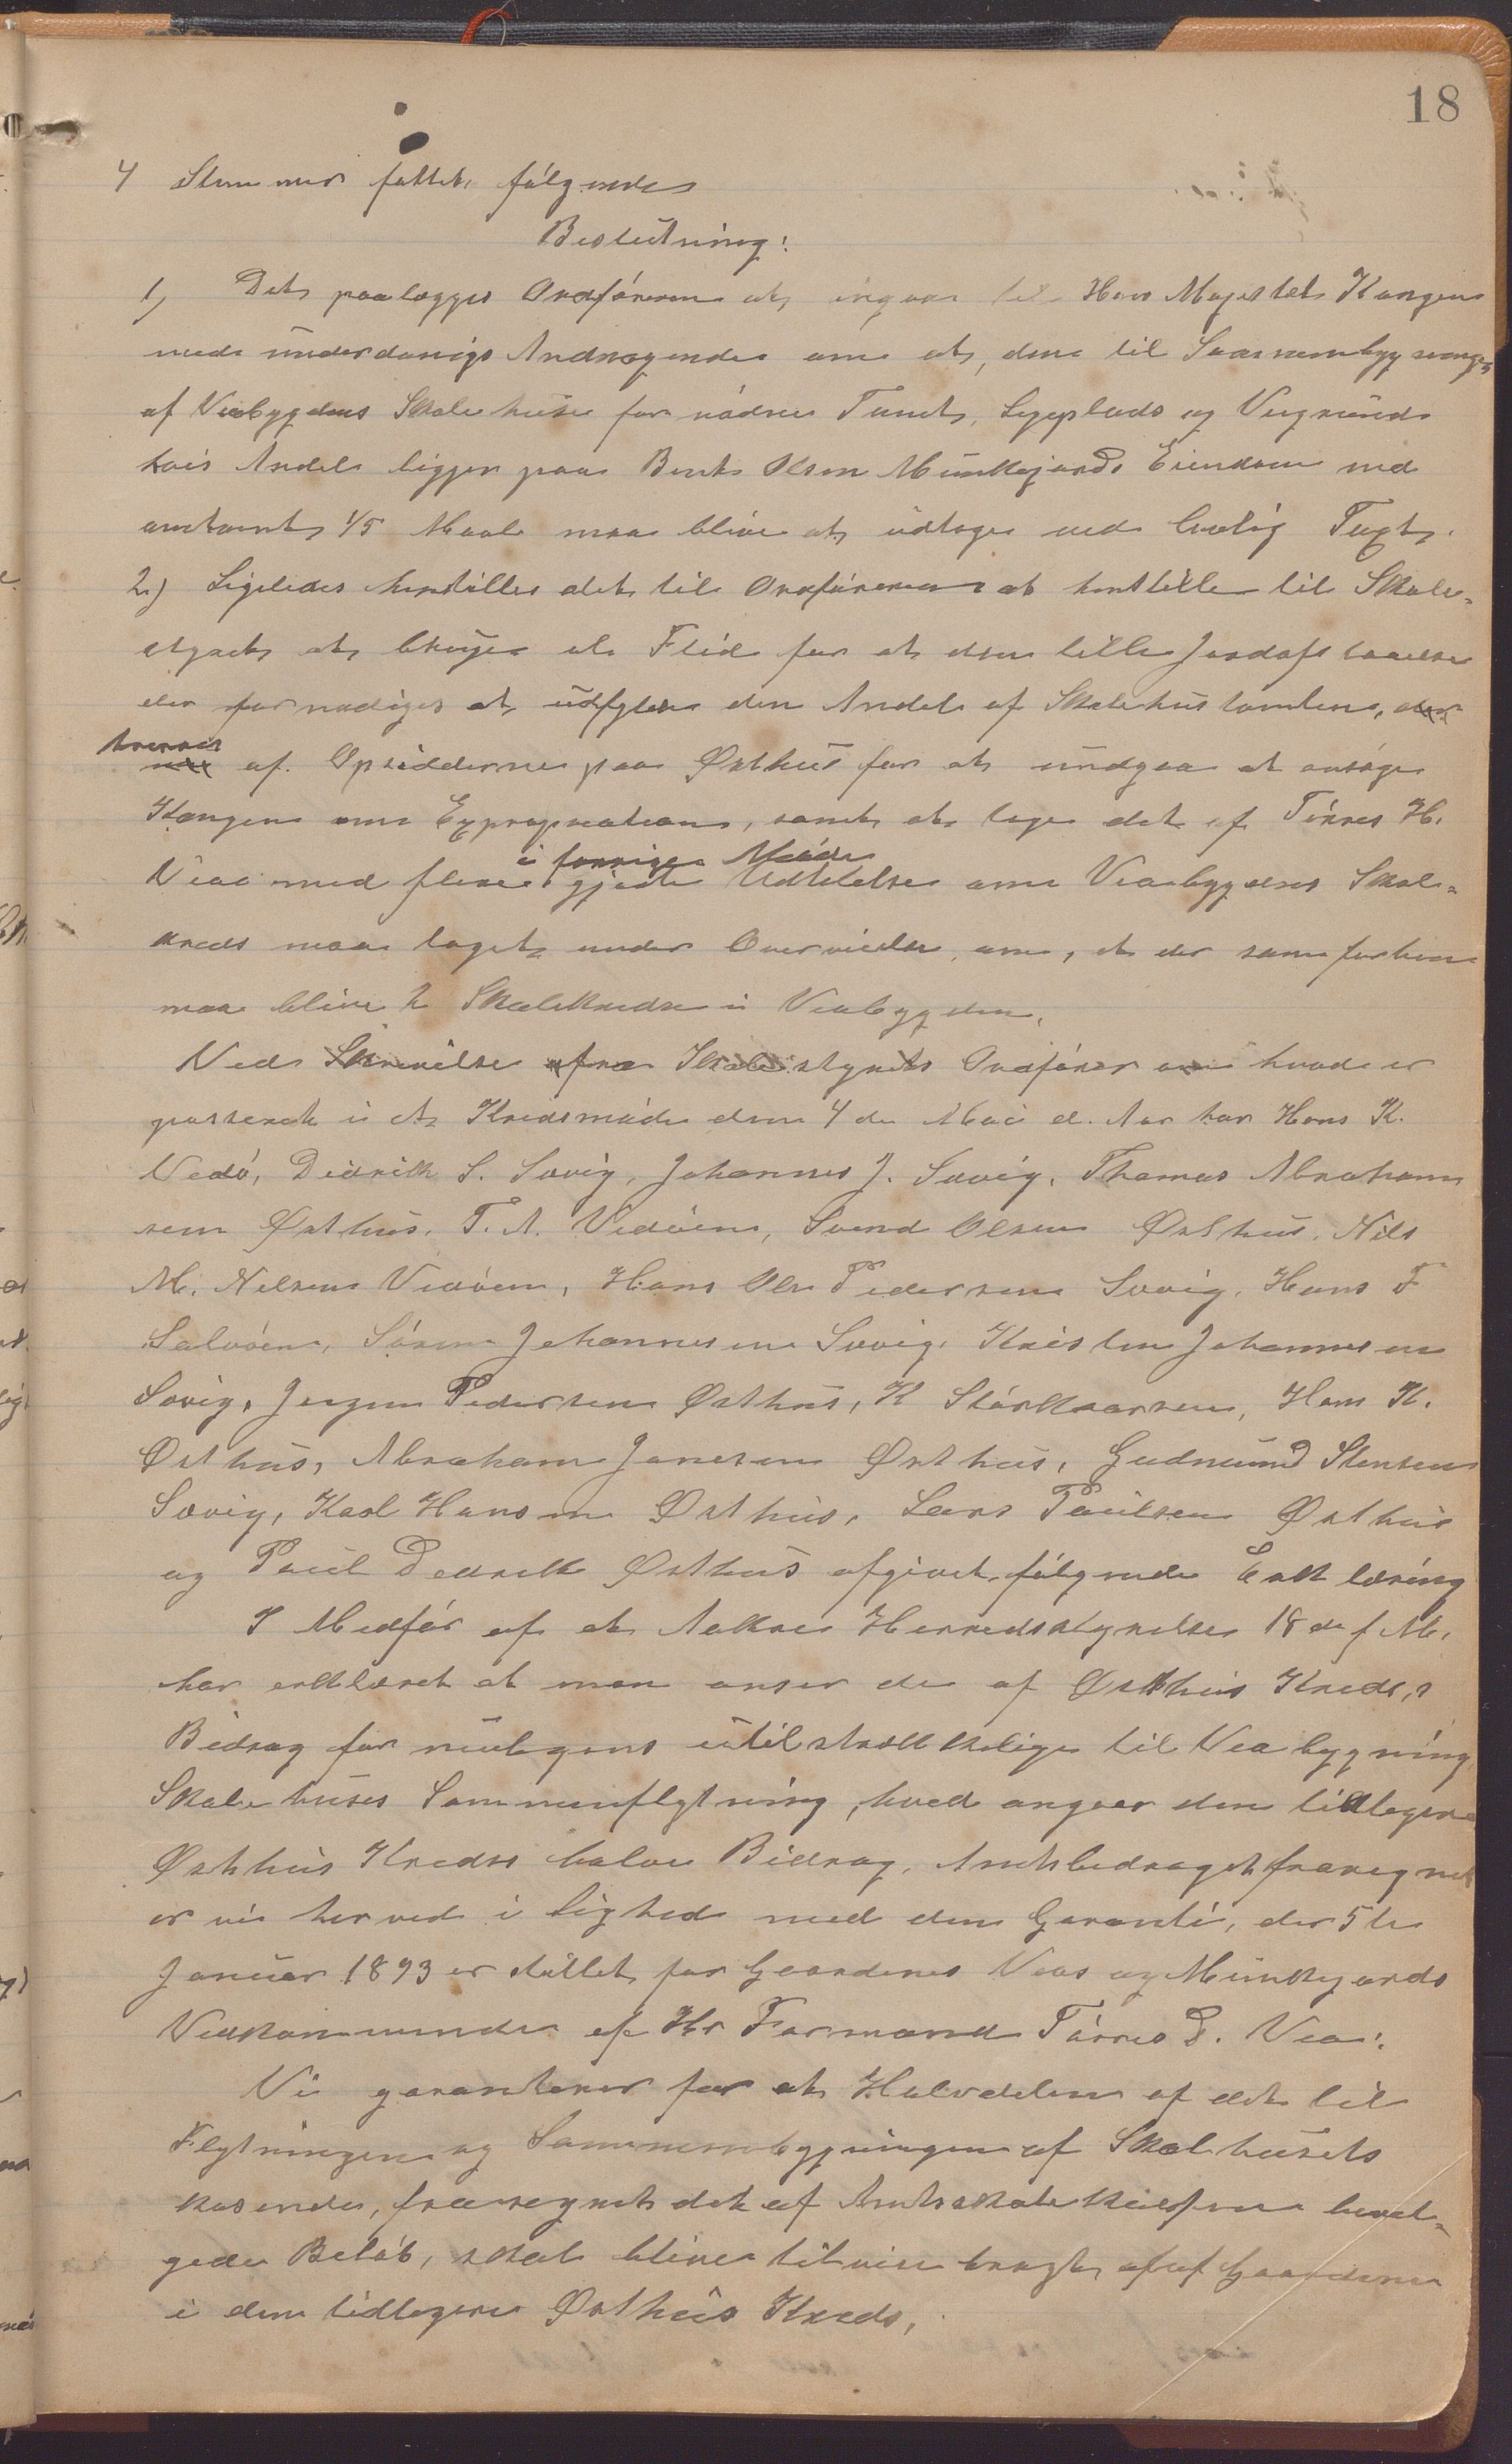 18
4 Stemmer fattet følgende
Beslutning:
1) Det paalægges Ordføreren at ingaa til Hans Majestæt Kongen
med underdanigs Andragende om at, den til Sammenbygninge
af Veabygdens Skolehuse for nødne Tomt, Legeplads og Veigrund
hvis Andel ligger paa Bent Olsen Munkejords Eiendom med
omtrent 1/5 Maal maa blive at udtage ved lovlig Taxt.
2) Ligeledes henstilles det til Ordføreren at henstille til Skole-
styret at bruge al Flid for at den lille Jordafstaaelse
der fornødiges at udfylde den Andel af Skolehustomten,
kræves af Opsidderne paa Østhus for at undgaa at ansøge
Kongen om Expropriation, samt at tage det af Tørres H.
i forrige Møde
Vea med flere gjorte Udtalelse om Veabygdens Skole-
kreds maa taget under Overveielse, om, at der som forhen
maa blive 2 Skolekredse i Veabygden.
Ved Skrivelse fra Skolestyrets Ordfører om hvad er
passeret i et Kredsmøde den 4 de Mai d. Aar har Hans K.
Vedø, Didrik S. Sævig, Johannes J. Sævig, Thomas Abraham
sen Østhus, T. A. Vedøen, Svend Olsen Østhus, Nils
M. Nilsen Vedøen, Hans Ole Pedersen Sævig, Hans F
Salvøen, Søren Johannesen Sævig, Kristen Johannesen
Sævig, Jørgen Pedersen Østhus, K Størkersen, Hans K.
Østhus, Abraham Jonesen Østhus, Gudmund Stensen
Sævig, Karl Hansen Østhus, Lars Paulsen Østhus
og Paul Didrik Østhus afgivet følgende Erklæring
I Medfør af at Aakre Herredsstyrelse 18 de f. M.
har erklæret at man anser de af Østhus Kreds,s
Bidrag for muligens utilstrækkelige til Veabygning
Skolehuses Sammenflytning, hvad angaar den tidligere
Østhus Kredss halve Bidrag, Amtsbidraget fraregnet
er vi herved i Lighed med den Garanti, der 5te
Januar 1893 er stillet for Gaardenes Veas og Munkejords
Vedkommende af Hr Formand Tørres D. Vea:
Vi garanterer for at Halvdelen af det til
Flytningen og Sammenbygningen af Skolehusets
kosende, fraregnet det af Amtsskolekassen bevil-
gede Beløb, skal blive tilveiebragt af Gaardene
i den tidligere Østhus Kreds,